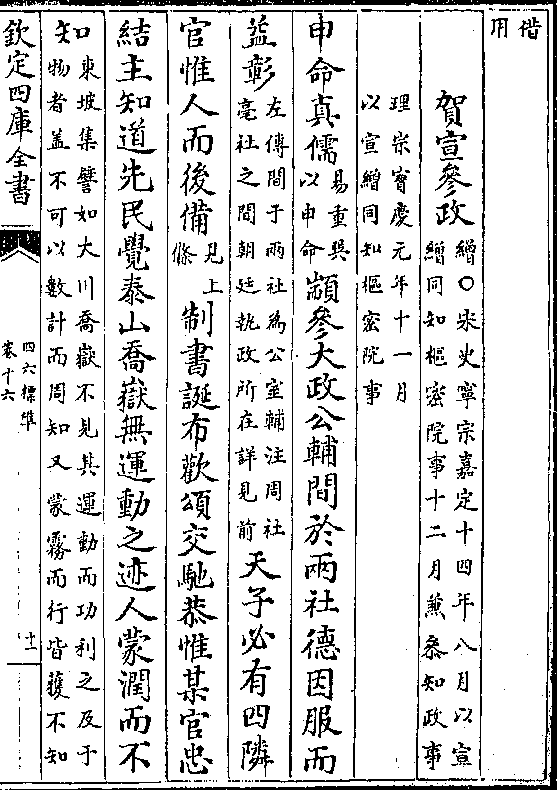 偕
用
賀宣參政繒〇宋史寧宗嘉定十四年八月以宣
繒同知樞密院事十二月兼參知政事
理宗寳慶元年十一月
以宣繒同知樞密院事
申命真儒易重巽
以申命顓參大政公輔間於兩社德因服而
益彰左傳間于兩社為公室輔注周社
亳社之間朝廷執政所在詳見前天子必有四隣
官惟人而後備見上
條制書誕布歡頌交馳恭惟某官忠
結主知道先民覺泰山喬嶽無運動之迹人蒙潤而不
知東坡集譬如大川喬嶽不見其運動而功利之及于
物者盖不可以數計而周知又蒙霧而行皆獲不知
欽定四庫全書
四六標準
卷十六